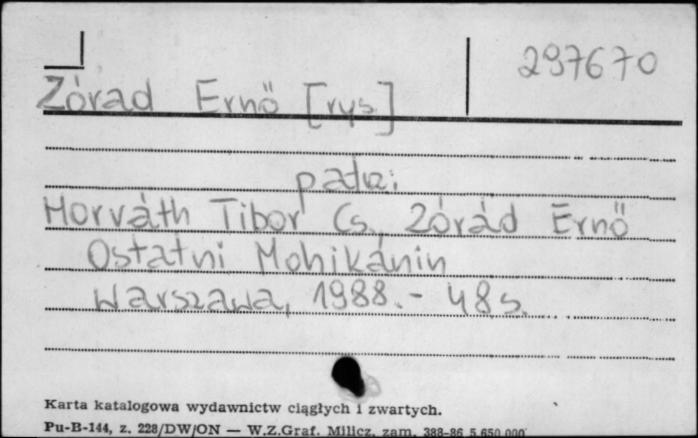 297670
Zórad Ernö [rys.]
patrz:
Horváth Tibor Cs., Zórád Ernö
Ostatni Mohikanin
Warszawa, 1988. - 48 s.
Karta katalogowa wydawnictw ciągłych i zwartych.
Pu-B-144, z. 228/DW/ON — W.Z.Graf. Milicz, zam. 388-86 5.650.000